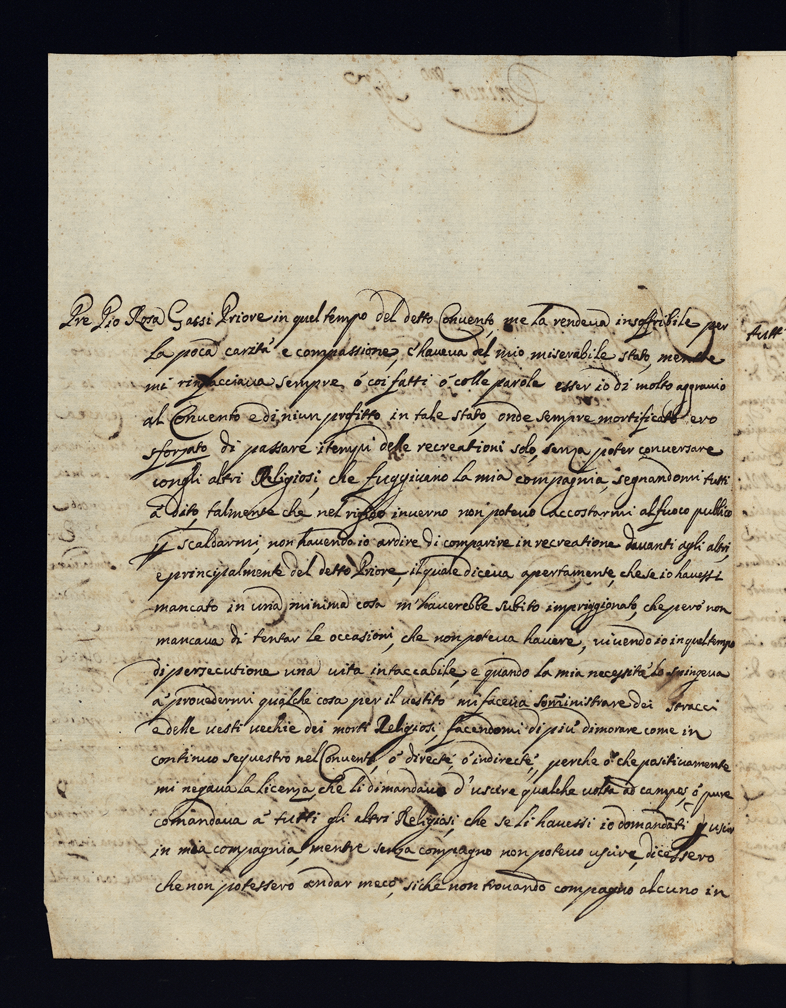 Pre Pio Rosa Gassi Priore in quel tempo del detto Convento, me la rendeva insoffribile per
la poca carità e compassione, c'haveva del mio miserabile stato, mentre
mi rinfacciava sempre ò coi fatti ò colle parole esser io di molto aggravio
al Convento e di niun profitto in tale stato, onde sempre mortificato ero
sforzato di passare i tempi delle recreationi solo, senza poter conversare
con gli altri Religiosi, che fuggivano la mia compagnia, segnandomi tutti
à dito, talmente che nel rigido inverno non potevo accostarmi al fuoco publico
p scaldarmi, non havendo io ardire di comparire in recreatione davanti agli altri,
e principalmente del detto Priore, il quale diceva apertamente, che se io havessi
mancato in una minima cosa m'haverebbe subito impriggionato, che però non
mancava di tentar le occasioni, che non poteva havere, vivendo io in quel tempo
di persecutione una vita intaccabile, e quando la mia necessità lo spingeva
à provedermi qualche cosa per il vestito mi faceva somministrare dei stracci
e delle vesti vecchie dei morti Religiosi, facendomi di più dimorare come in
continuo sequestro nel Convento, ò directè, ò indirectè, perche ò che positivamente
mi negava la licenza, che li dimandavo d'uscire qualche volta ad campos, ò pure
comandava à tutti gli altri Religiosi, che se li havessi io domandati p uscir
in mia compagnia, mentre senza compagno non potevo uscire, dicessero
che non potessero andar meco, siche non trovando compagno alcuno in